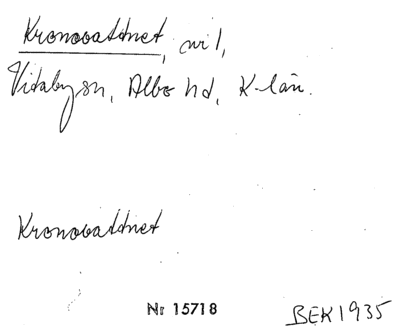 Kronovattnet, nr 1,
Vitaby sn, Albo hd, K-län.
Kronovattnet
Nr 15718
BEK 1935